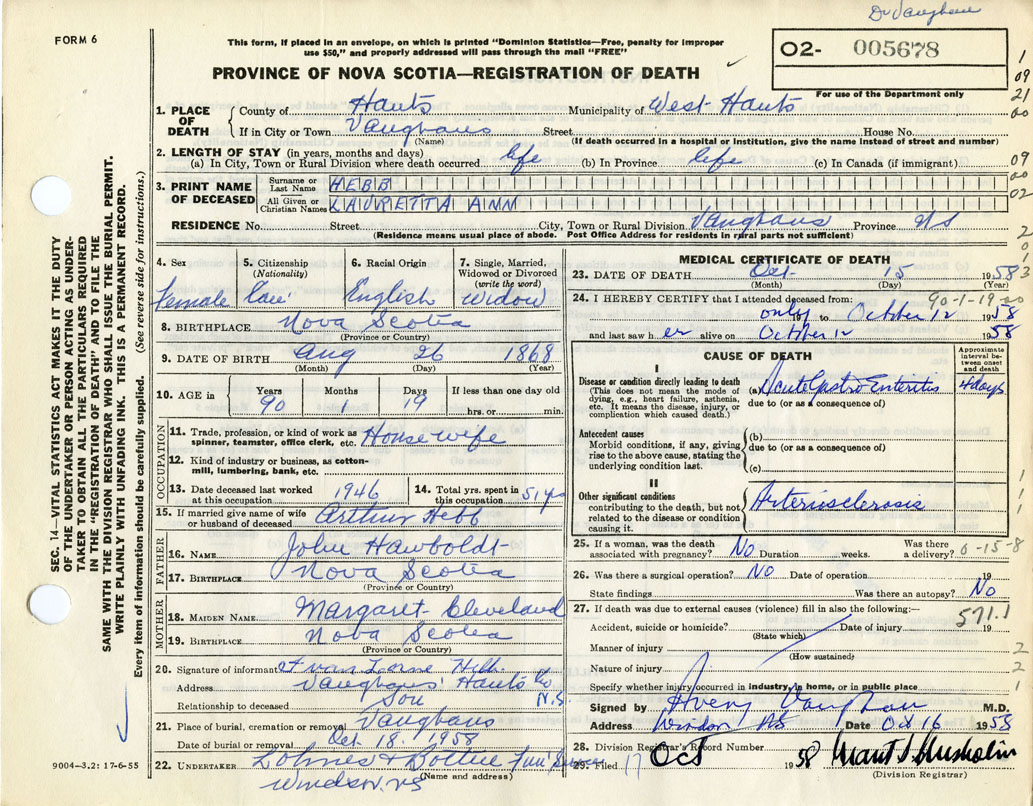 Dr Vaughan
FORM 6
This form, if placed in an envelope, on which is printed "Dominion Statistics—Free, penalty for improper
use $50," and properly addressed will pass through the mail "FREE"
O2- 005678
For use of the Department only
PROVINCE OF NOVA SCOTIA—REGISTRATION OF DEATH
1. PLACE OF DEATH County of Hants Municipality of West Hants
If in City or Town Vaughans Street House No.
(Name) (If death occurred in a hospital or institution, give the name instead of street and number)
2. LENGTH OF STAY (in years, months and days)
(a) In City, Town or Rural Division where death occurred life (b) In Province life (c) In Canada (if immigrant)
3. PRINT NAME OF DECEASED Surname or Last Name HEBB
All Given or Christian Names LAURETTA ANN
RESIDENCE No. Street City, Town or Rural Division Vaughans Province NS
(Residence means usual place of abode. Post Office Address for residents in rural parts not sufficient)
4. Sex 5. Citizenship (Nationality) 6. Racial Origin 7. Single, Married, Widowed or Divorced (write the word)
female Can English Widow
8. BIRTHPLACE Nova Scotia
(Province or Country)
9. DATE OF BIRTH Aug 26 1868
(Month) (Day) (Year)
10. AGE in Years 90 Months 1 Days 19 If less than one day old hrs. or min.
OCCUPATION
11. Trade, profession, or kind of work as spinner, teamster, office clerk, etc. Housewife
12. Kind of industry or business, as cotton-mill, lumbering, bank, etc.
13. Date deceased last worked at this occupation 1946 14. Total yrs. spent in this occupation 51 yrs
15. If married give name of wife or husband of deceased Arthur Hebb
FATHER
16. NAME John Hawboldt
17. BIRTHPLACE Nova Scotia
(Province or Country)
MOTHER
18. MAIDEN NAME Margaret Cleveland
19. BIRTHPLACE Nova Scotia
(Province or Country)
20. Signature of informant Evan Lorne Hebb
Address Vaughans Hants Co N.S.
Relationship to deceased Son
21. Place of burial, cremation or removal Vaughans
Date of burial or removal Oct. 18. 1958
22. UNDERTAKER Lohnes & Fun Service
(Name and address)
Windsor, NS
MEDICAL CERTIFICATE OF DEATH
23. DATE OF DEATH Oct 15 1958
(Month) (Day) (Year)
24. I HEREBY CERTIFY that I attended deceased from: 90-1-19
only 19 to October 12 1958
and last saw her alive on October 12 1958
CAUSE OF DEATH
Approximate interval between onset and death
I
Disease or condition directly leading to death
(This does not mean the mode of dying, e.g., heart failure, asthenia, etc. It means the disease, injury, or complication which caused death.)
(a) Acute Gastro Enteritis 4 days
due to (or as a consequence of)
Antecedent causes
Morbid conditions, if any, giving rise to the above cause, stating the underlying condition last.
(b)
due to (or as a consequence of)
(c)
II
Other significant conditions
contributing to the death, but not related to the disease or condition causing it.
Arteriosclerosis
25. If a woman, was the death associated with pregnancy? No Duration weeks. Was there a delivery? 0-15-8
26. Was there a surgical operation? No Date of operation 19
State findings Was there an autopsy? No
27. If death was due to external causes (violence) fill in also the following:— 571.1
Accident, suicide or homicide? Date of injury 19
(State which)
Manner of injury
(How sustained)
Nature of injury
Specify whether injury occurred in industry, in home, or in public place
Signed by Avery Vaughan M.D.
Address Windsor NS Date Oct 16 1958
28. Division Registrar's Record Number
29. Filed 17 Oct 1958
(Division Registrar)
SEC. 14—VITAL STATISTICS ACT MAKES IT THE DUTY
OF THE UNDERTAKER OR PERSON ACTING AS UNDER-
TAKER TO OBTAIN ALL THE PARTICULARS REQUIRED
IN THE "REGISTRATION OF DEATH" AND TO FILE THE
SAME WITH THE DIVISION REGISTRAR WHO SHALL ISSUE THE BURIAL PERMIT.
WRITE PLAINLY WITH UNFADING INK. THIS IS A PERMANENT RECORD.
Every item of information should be carefully supplied. (See reverse side for instructions.)
9004-3.2: 17-6-55
1
09
21
00
09
00
02
2
0
1
3
1
1
1
2
2
1